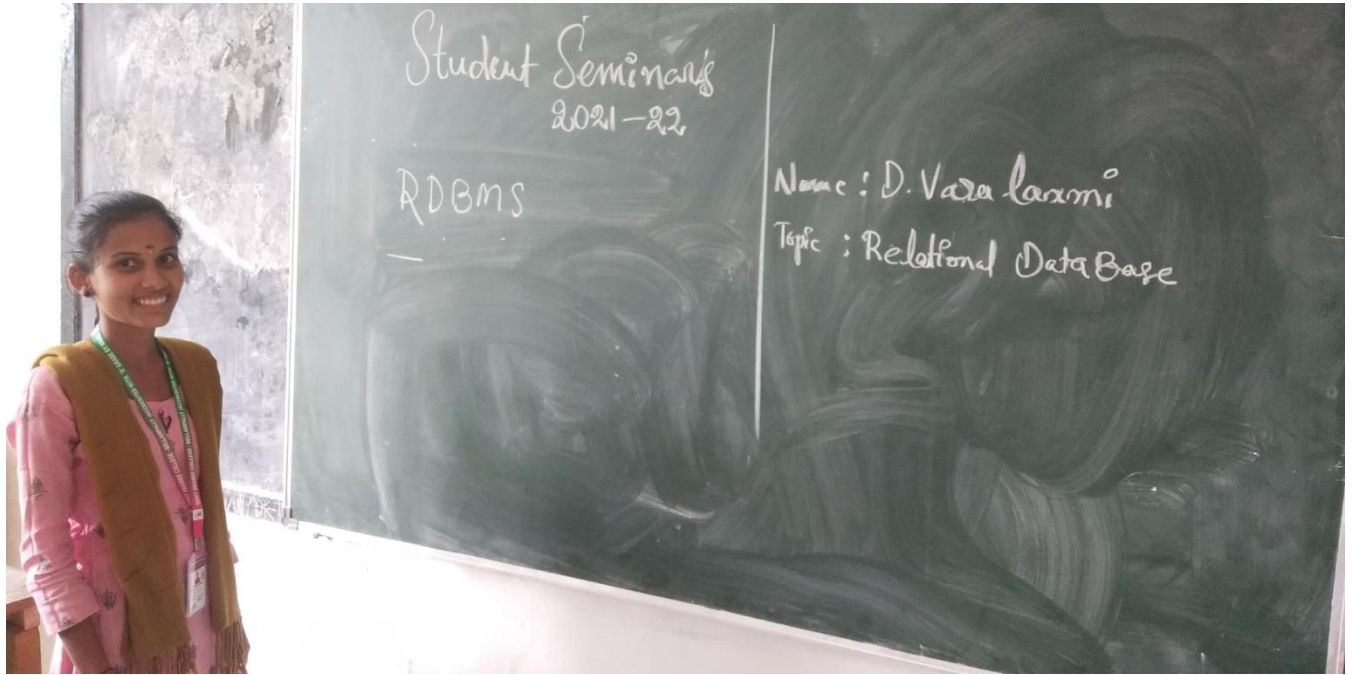 Student Seminar's
2021-22
RDBMS
Name : D. Vara laxmi
Topic : Relational DataBase